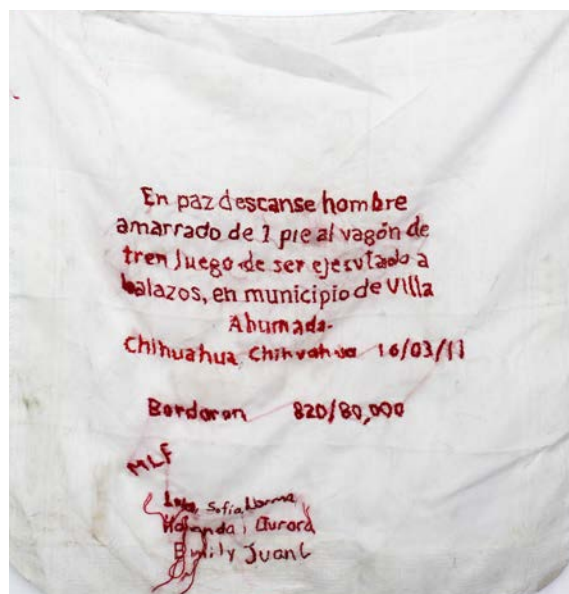 En paz descanse hombre
amarrado de 1 pie al vagón de
tren luego de ser ejecutado a
balazos, en municipio de Villa
Ahumada-
Chihuahua Chihuahua 16/03/11
Bordaron 820/80,000
MLF
Sofia, Norma
Aurora
Emily Juan L